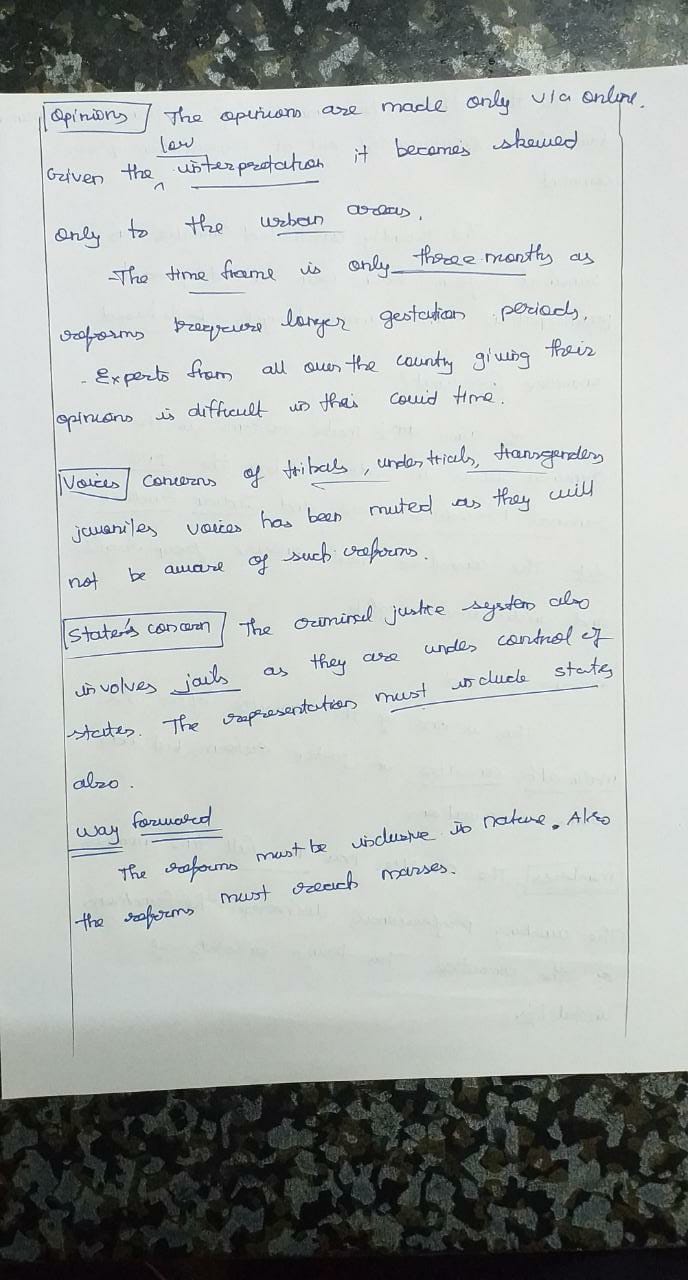 Opinions The opinions are made only via online.
low
Given the ^ interpretation it becomes skewed
only to the urban areas.
- The time frame is only three months as
reforms require longer gestation periods.
- Experts from all over the country giving their
opinions is difficult in this covid time.
Voices Concerns of tribals, under trials, transgenders
juveniles voices has been muted as they will
not be aware of such reforms.
State's concern The criminal justice system also
involves jails as they are under control of
states. The representation must include states
also.
Way forward
The reforms must be inclusive in nature. Also
the reforms must reach masses.